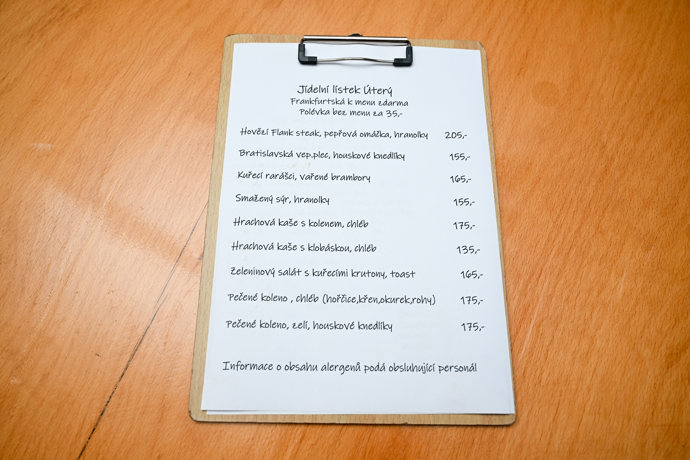 Jídelní lístek Úterý
Frankfurtská k menu zdarma
Polévka bez menu za 35,-
Hovězí Flank steak, pepřová omáčka, hranolky 205,-
Bratislavská vep.plec, houskové knedlíky 155,-
Kuřecí rarášci, vařené brambory 165,-
Smažený sýr, hranolky 155,-
Hrachová kaše s kolenem, chléb 175,-
Hrachová kaše s klobáskou, chléb 135,-
Zeleninový salát s kuřecími krutony, toast 165,-
Pečené koleno , chléb (hořčice,křen,okurek,rohy) 175,-
Pečené koleno, zelí, houskové knedlíky 175,-
Informace o obsahu alergenů podá obsluhující personál